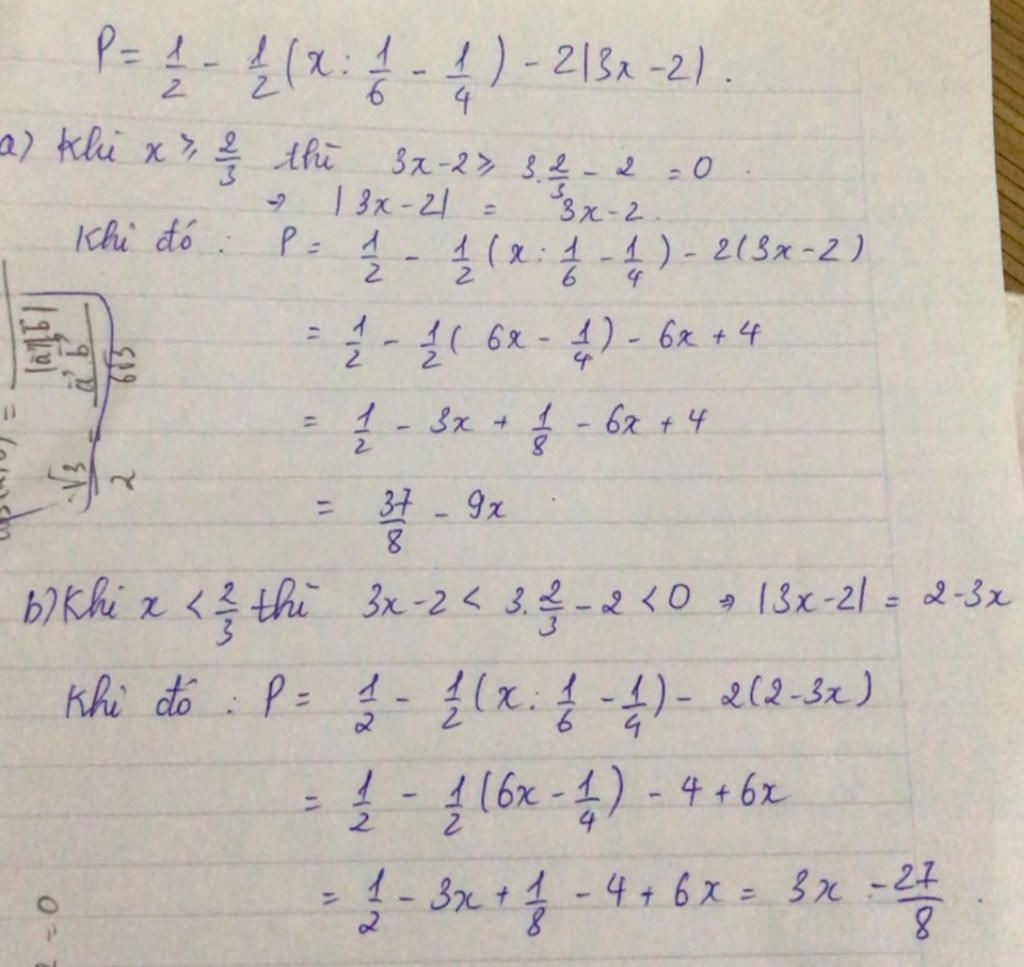 P = 1/2 - 1/2 ( x : 1/6 - 1/4 ) - 2|3x - 2| .
a) Khi x ≥ 2/3 thì 3x - 2 ≥ 3. 2/3 - 2 = 0 .
→ |3x - 2| = 3x - 2 .
Khi đó : P = 1/2 - 1/2 ( x : 1/6 - 1/4 ) - 2(3x - 2)
= 1/2 - 1/2 ( 6x - 1/4 ) - 6x + 4
= 1/2 - 3x + 1/8 - 6x + 4
= 37/8 - 9x
b) Khi x < 2/3 thì 3x - 2 < 3. 2/3 - 2 < 0 → |3x - 2| = 2 - 3x
Khi đó : P = 1/2 - 1/2 ( x : 1/6 - 1/4 ) - 2(2 - 3x)
= 1/2 - 1/2 ( 6x - 1/4 ) - 4 + 6x
= 1/2 - 3x + 1/8 - 4 + 6x = 3x - 27/8 .